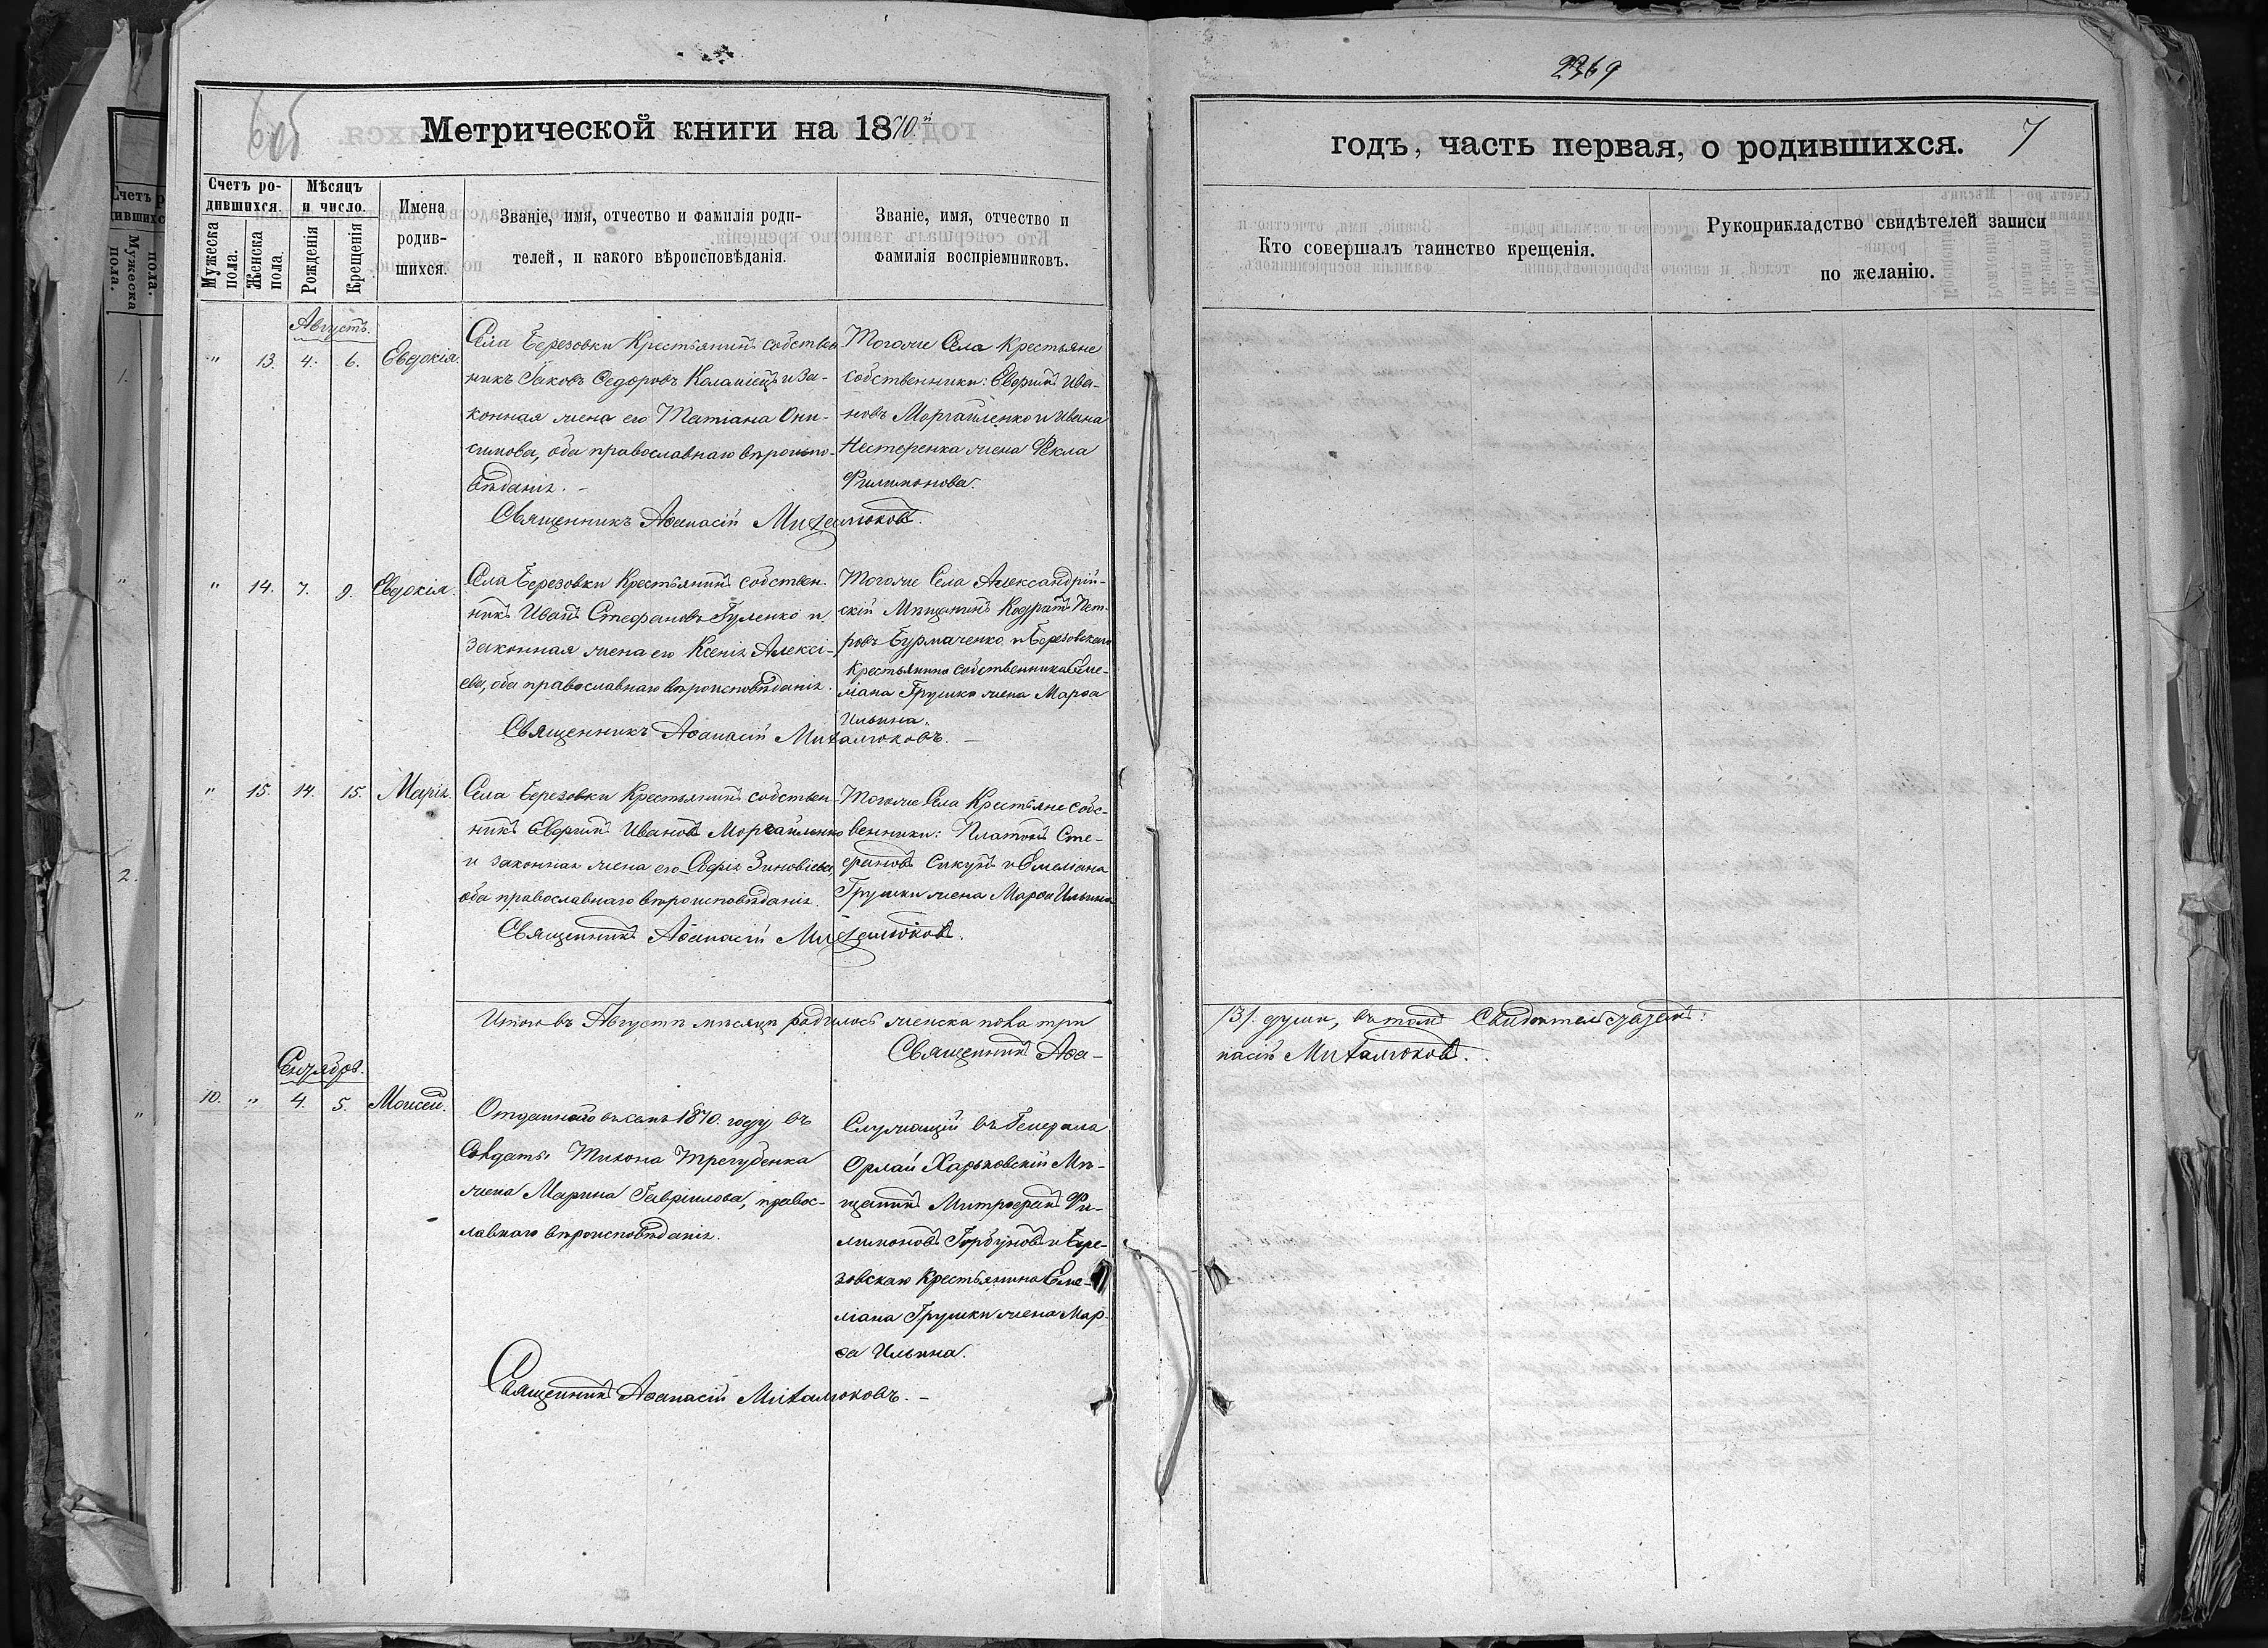 605
2369
Метрической книги на 1870й
годъ, часть первая, о родившихся. 7
Счетъ родившихся.
Мужеска пола.
Женска пола.
Мѣсяцъ и число.
Рожденія
Крещенія
Имена родив-
шихся.
Званіе, имя, отчество и фамилія роди-
телей, и какого вѣроисповѣданія.
Званіе, имя, отчество и
фамилія воспріемниковъ.
Кто совершалъ таинство крещенія.
Рукоприкладство свидѣтелей записи
по желанію.
Августъ.
" 13. 4. 6. Евдокія.
Села Березовки Крестьянинъ собствен-
никъ Іаковъ Ѳедоровъ и за-
конная жена его Татіана Они-
симова, оба православнаго вѣроиспо-
вѣданія. –
Тогоже Села Крестьяне
собственники: Евфимъ Ива-
новъ Моргайленко и Ивана
Нестеренка жена Ѳекла
Филимонова.
Священникъ Аѳанасій Михалюковъ.
" 14. 7. 9. Евдокія.
Села Березовки Крестьянинъ собствен-
никъ Иванъ Стефановъ Гуленко и
законная жена его Ксенія Алексі-
ева, оба православнаго вѣроисповѣданія.
Тогоже Села Александрій-
скій Мѣщанинъ Кодратъ Пет-
ровъ Бурмаченко и Березовскаго
Крестьянина собственника Еме-
ліана Грушки жена Марѳа
Ильина.
Священникъ Аѳанасій Михалюковъ. –
" 15. 14. 15. Марія.
Села Березовки Крестьянинъ собствен-
никъ Евфимъ Ивановъ Моргайленко
и законная жена его Софія Зиновіева,
оба православнаго вѣроисповѣданія.
Тогоже Села Крестьяне собс-
венники: Платонъ Сте-
фановъ Сикунъ и Емеліана
Грушки жена Марѳа Ильина
Священникъ Аѳанасій Михалюковъ.
Итого въ Августѣ мѣсяцѣ родилось женска пола три
/3/. души, въ томъ Свидѣтельствуемъ:
Священникъ Аѳа-
насій Михалюковъ.
Сентябрь.
10. " 4. 5. Моисей.
Отданнаго въ семъ 1870. году въ
Солдаты Тихона Трегубенка
жена Марина Гавріилова, правос-
лавнаго вѣроисповѣданія.
Служащій въ Генерала
Орлай Харьковскій Мѣ-
щанинъ Митрофанъ Фи-
лимоновъ Горбуновъ и Бере-
зовскаго Крестьянина Еме-
ліана Грушки жена Мар-
ѳа Ильина.
Священникъ Аѳанасій Михалюковъ. –